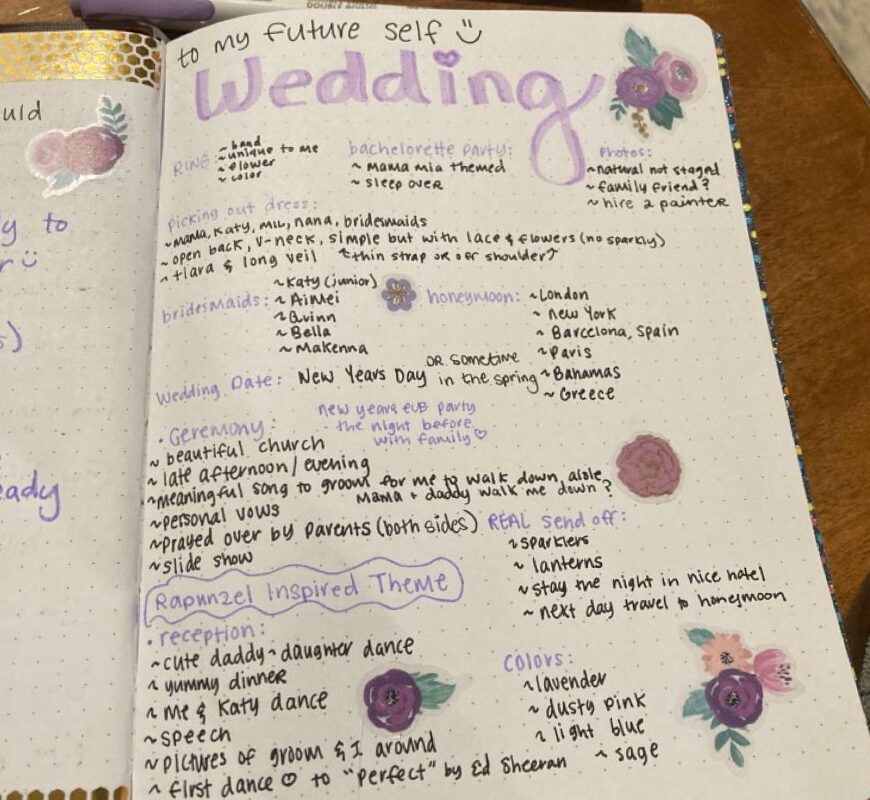 DOUBLE
uld
y to
r
s)
eady
to my future self
Wedding
RING: ~ band
~ unique to me
~ flower
~ color
bachelorette party:
~ mama mia themed
~ sleep over
Photos:
~natural not staged
~ family friend?
~ hire a painter
picking out dress:
~mama, Katy, MIL, nana, bridesmaids
~ open back, v-neck, simple but with lace & flowers (no sparkly)
~ tiara & long veil ↑thin strap or off shoulder↗
bridesmaids: ~ Katy (junior)
~ AiMei
~ Quinn
~ Bella
~ Makenna
honeymoon: ~London
~ New York
~ Barcelona, Spain
~Paris
~Bahamas
~ Greece
Wedding Date: New Years Day or sometime in the spring
new years eve party
the night before
with family ♡
• Ceremony:
~ beautiful church
~ late afternoon / evening
~meaningful song to groom for me to walk down, aisle,
mama + daddy walk me down?
~personal vows
~prayed over by parents (both sides)
~ slide show
REAL send off:
~sparklers
~ lanterns
~ stay the night in nice hotel
~ next day travel to honeymoon
Rapunzel Inspired Theme
• reception:
~cute daddy-daughter dance
~ yummy dinner
~ me & Katy dance
~speech
~ pictures of groom & I around
~ first dance to "perfect" by Ed Sheeran
Colors:
~lavender
~ dusty pink
~ light blue
~ sage